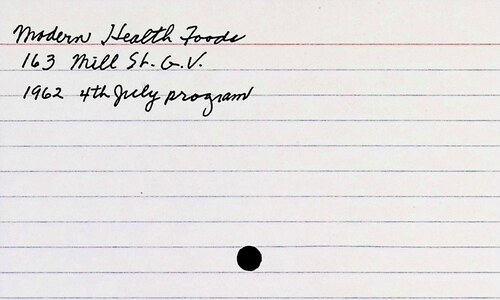 Modern Health Foods
163 Mill St. G.V.
1962 4th July program